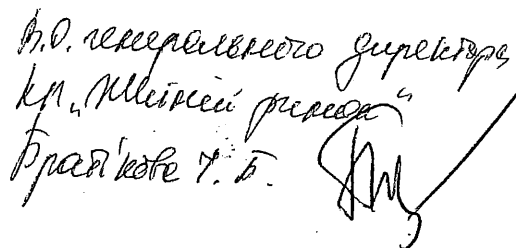 В.О. генерального директора
КП „Житній ринок“
Братікова Т. Б.